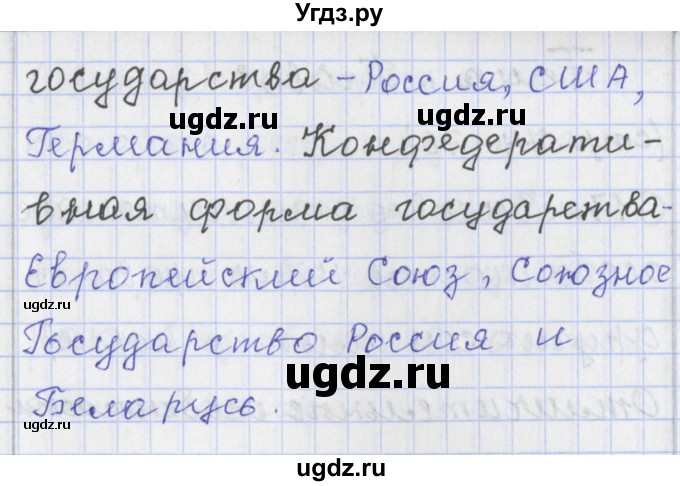 Угдз.ру
государства - Россия, США,
ugdz.ru ugdz.ru
Германия. Конфедерати-
вная форма государства-
Европейский Союз, Союзное
ugdz.ru
Государство Россия и
ugdz.ru
Беларусь.
ugdz.ru
ugdz.ru